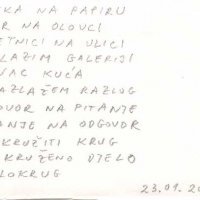 KA NA PAPIRU
R NA OLOVCI
ETNICI NA ULICI
LAZIM GALERIJI
VAC KUĆA
AZLAŽEM RAZLOG
OVOR NA PITANJE
ANJE NA ODGOVOR
KRUŽITI KRUG
KRUŽENO DJELO
LOKRUG
23.01.20